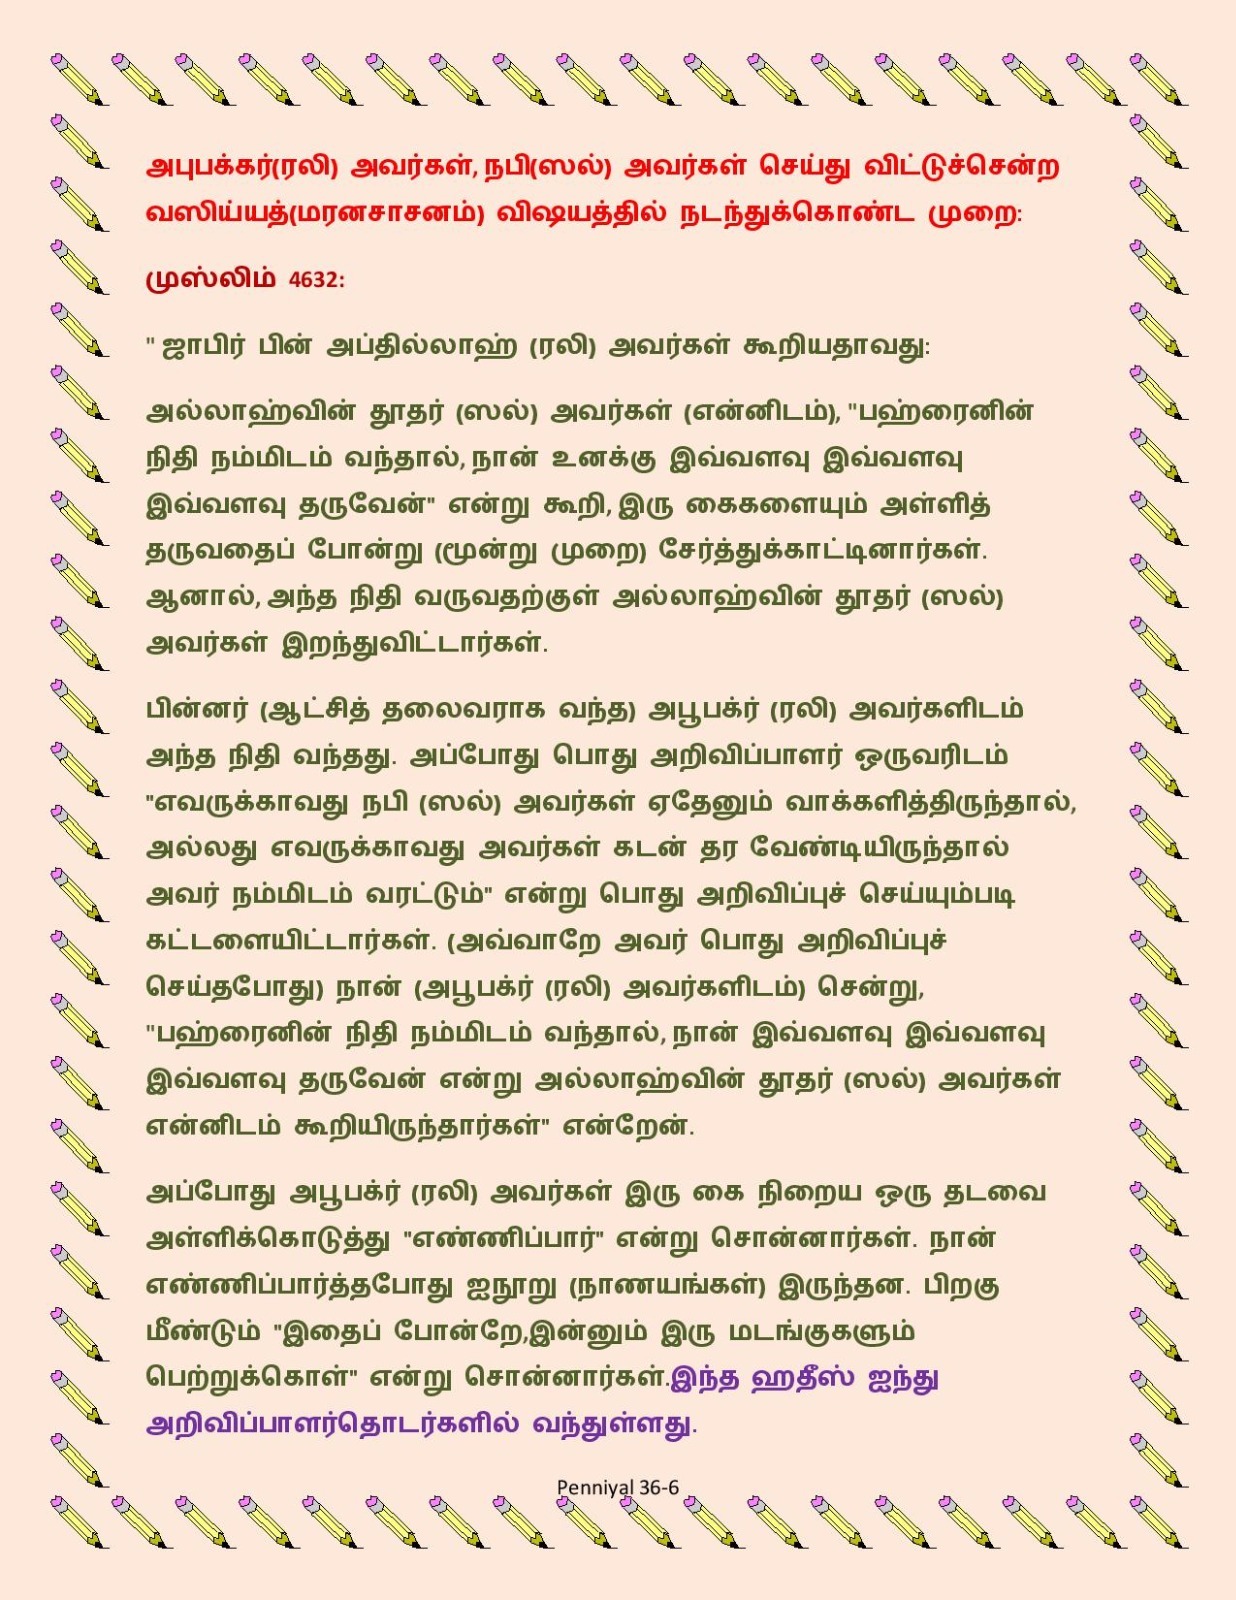 அபுபக்கர்(ரலி) அவர்கள், நபி(ஸல்) அவர்கள் செய்து விட்டுச்சென்ற
வஸிய்யத்(மரனசாசனம்) விஷயத்தில் நடந்துக்கொண்ட முறை:
முஸ்லிம் 4632:
" ஜாபிர் பின் அப்தில்லாஹ் (ரலி) அவர்கள் கூறியதாவது:
அல்லாஹ்வின் தூதர் (ஸல்) அவர்கள் (என்னிடம்), "பஹ்ரைனின்
நிதி நம்மிடம் வந்தால், நான் உனக்கு இவ்வளவு இவ்வளவு
இவ்வளவு தருவேன்" என்று கூறி, இரு கைகளையும் அள்ளித்
தருவதைப் போன்று (மூன்று முறை) சேர்த்துக்காட்டினார்கள்.
ஆனால், அந்த நிதி வருவதற்குள் அல்லாஹ்வின் தூதர் (ஸல்)
அவர்கள் இறந்துவிட்டார்கள்.
பின்னர் (ஆட்சித் தலைவராக வந்த) அபூபக்ர் (ரலி) அவர்களிடம்
அந்த நிதி வந்தது. அப்போது பொது அறிவிப்பாளர் ஒருவரிடம்
"எவருக்காவது நபி (ஸல்) அவர்கள் ஏதேனும் வாக்களித்திருந்தால்,
அல்லது எவருக்காவது அவர்கள் கடன் தர வேண்டியிருந்தால்
அவர் நம்மிடம் வரட்டும்" என்று பொது அறிவிப்புச் செய்யும்படி
கட்டளையிட்டார்கள். (அவ்வாறே அவர் பொது அறிவிப்புச்
செய்தபோது) நான் (அபூபக்ர் (ரலி) அவர்களிடம்) சென்று,
"பஹ்ரைனின் நிதி நம்மிடம் வந்தால், நான் இவ்வளவு இவ்வளவு
இவ்வளவு தருவேன் என்று அல்லாஹ்வின் தூதர் (ஸல்) அவர்கள்
என்னிடம் கூறியிருந்தார்கள்" என்றேன்.
அப்போது அபூபக்ர் (ரலி) அவர்கள் இரு கை நிறைய ஒரு தடவை
அள்ளிக்கொடுத்து "எண்ணிப்பார்" என்று சொன்னார்கள். நான்
எண்ணிப்பார்த்தபோது ஐநூறு (நாணயங்கள்) இருந்தன. பிறகு
மீண்டும் "இதைப் போன்றே,இன்னும் இரு மடங்குகளும்
பெற்றுக்கொள்" என்று சொன்னார்கள்.இந்த ஹதீஸ் ஐந்து
அறிவிப்பாளர்தொடர்களில் வந்துள்ளது.
Penniyal 36-6